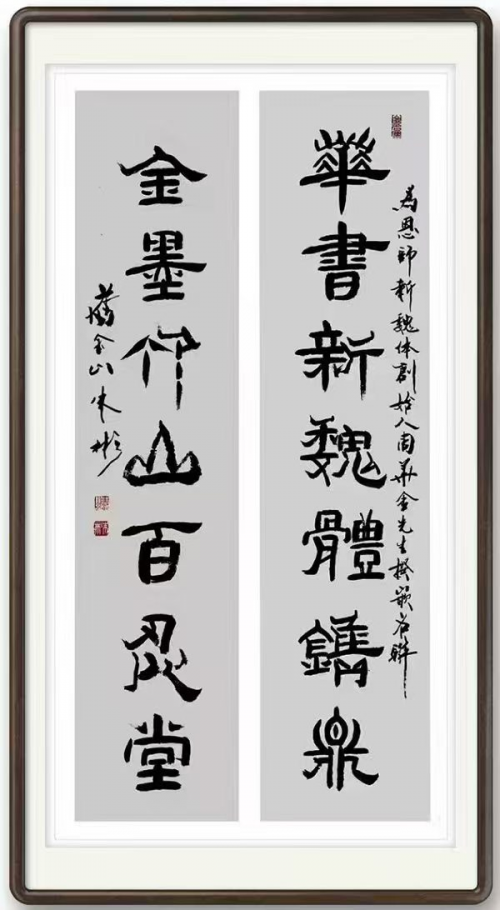 華書新魏體鐫鼎
為恩師新魏体創始人周华金先生撰嵌名聯
金墨竹山百堂
舊金山朱彬